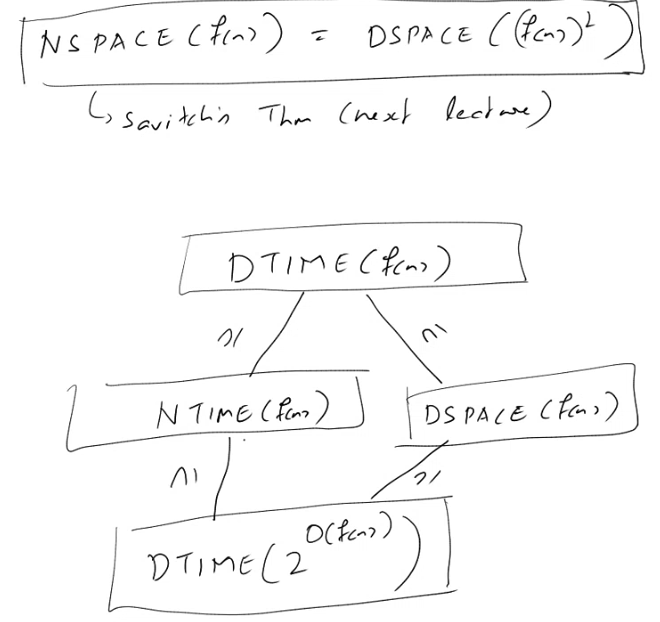 NSPACE(f(n)) = DSPACE((f(n))²)
↳ Savitch's Thm (next lecture)
DTIME(f(n))
⊆ ⊆
NTIME(f(n)) DSPACE(f(n))
⊆ ⊆
DTIME(2^O(f(n)))